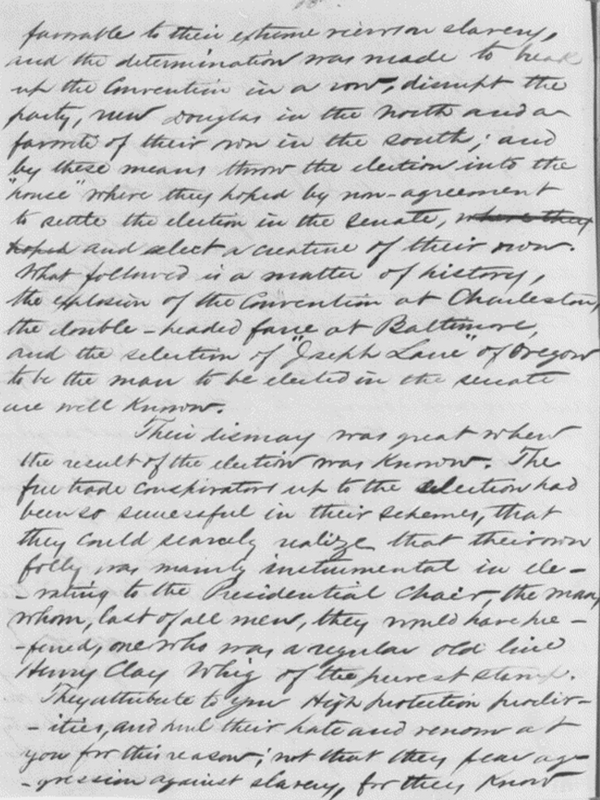 favorable to their extreme views on slavery,
and the determination was made to break
up the Convention in a row, disrupt the
party, run Douglas in the North and a
favorite of their own in the South; and
by these means throw the election into the
"house" where they hoped by non-agreement
to settle the election in the Senate, where they
hoped and elect a creature of their own.
What followed is a matter of history,
the explosion of the Convention at Charleston,
the double-headed farce at Baltimore,
and the selection of "Joseph Lane" of Oregon
to be the man to be elected in the senate
are well known.
Their dismay was great when
the result of the election was known. The
free trade conspirators up to the election had
been so successful in their schemes, that
they could scarcely realize that their own
folly was mainly instrumental in ele-
-vating to the Presidential Chair, the man,
whom, last of all men, they would have pre-
-fered, one who was a regular old line
Henry Clay Whig of the purest stamp.
They attribute to you High protection procliv-
-ities, and hurl their hate and venom at
you for this reason; not that they fear ag-
-gression against slavery, for they know